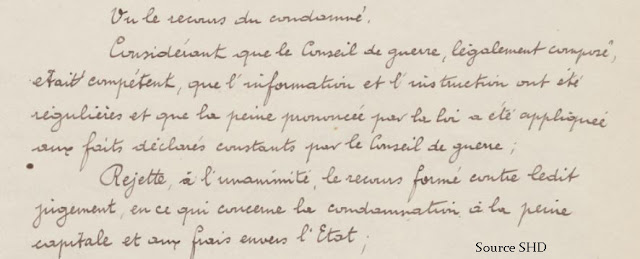 Vu le recours du condamné.
Considérant que le Conseil de guerre, légalement composé,
etait compétent, que l'information et l'instruction ont été
régulières et que la peine prononcée par la loi a été appliquée
aux faits déclarés constants par le Conseil de guerre ;
Rejette, à l'unanimité, le recours formé contre ledit
jugement, en ce qui concerne la condamnation à la peine
capitale et aux frais envers l'Etat ;
Source SHD